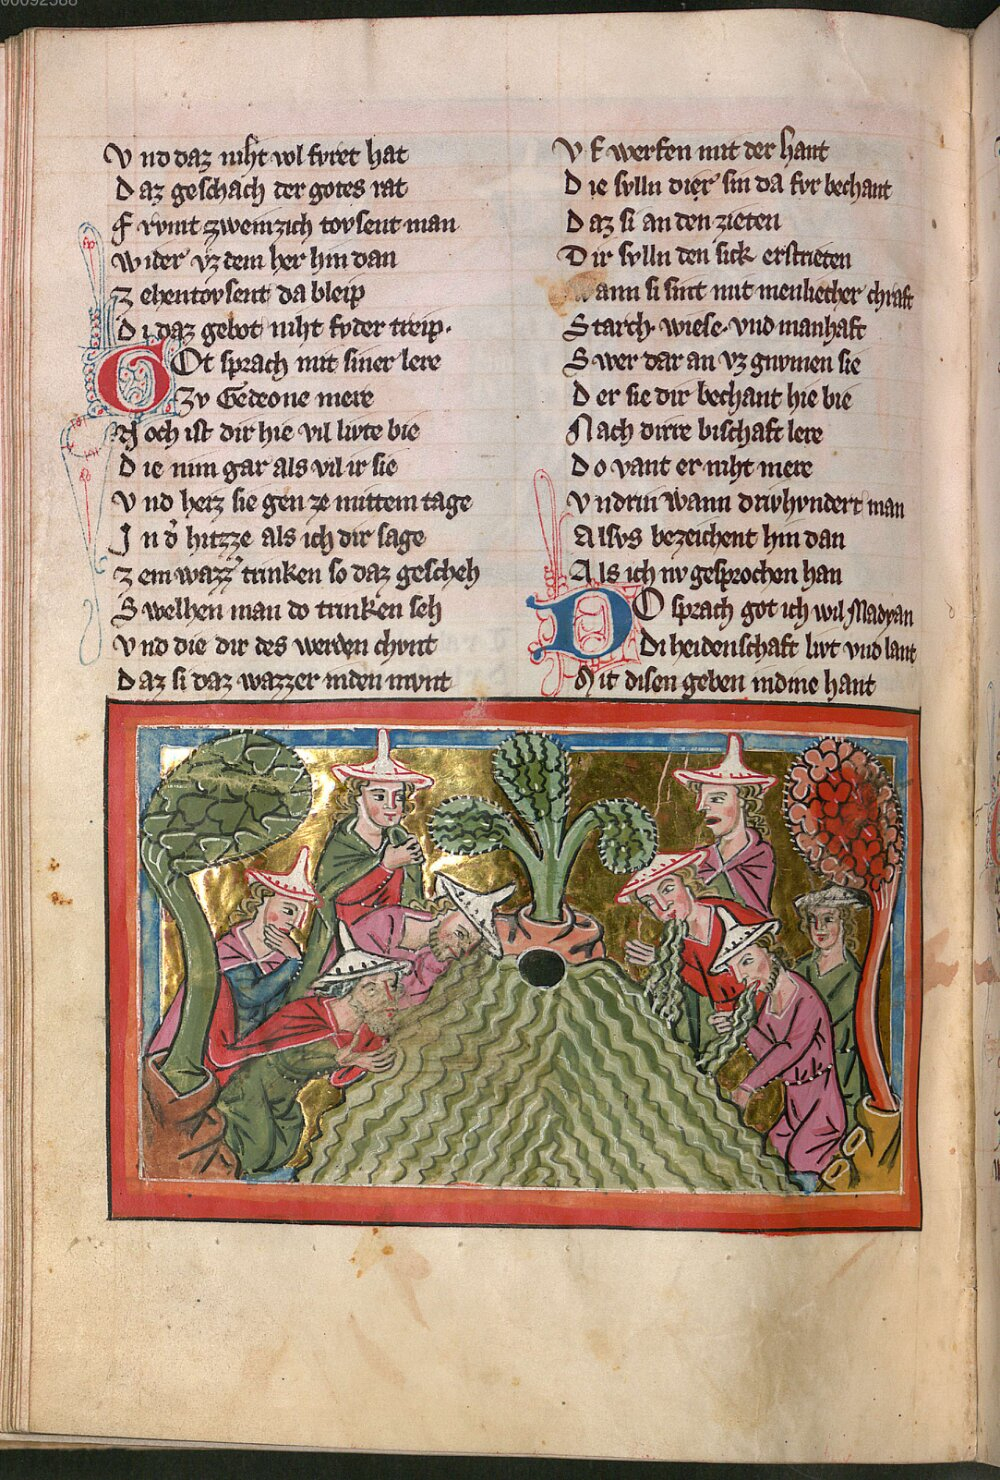 00092588
Vnd daz niht wl fvret hat
Daz geschach der gotes rat
Frvmt zweinzich tovsent man
Wider vz dem her hin dan
Zehentovsent da bleip
Di daz gebot niht fvder treip.
GOt sprach mit siner lere
Zv Gedeone mere
Noch ist dir hie vil livte bie
Die nim gar als vil ir sie
Vnd heiz sie gen ze mittem tage
In d' hitzze als ich dir sage
Zem wazz' trinken so daz gescheh
Swelhen man do trinken seh
Vnd die dir des werden chvnt
Daz si daz wazzer inden mvnt
Vf werfen mit der hant
Die svlln dier sin da fvr bechant
Daz si an den zieten
Dir svlln den sick erstrieten
Wann si sint mit menlicher chraft
Starch. wiese. vnd manhaft
Swer dar an vz gnvmen sie
Der sie dir bechant hie bie
Nach dirre bischaft lere
Do vant er niht mere
Vndrin wann drivhvndert man
Alsvs bezeichent hin dan
Als ich nv gesprochen han
DO sprach got ich wil Madyan
Di heidenschaft livt vnd lant
Mit disen geben in dine hant